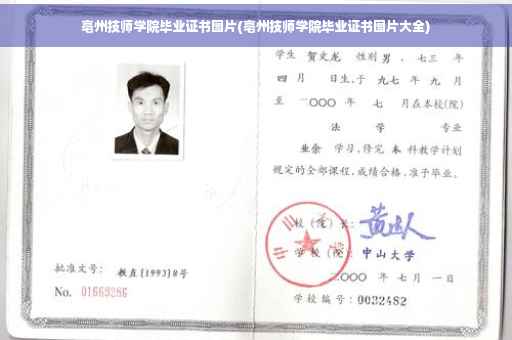 亳州技师学院毕业证书图片(亳州技师学院毕业证书图片大全)
学生 贺文龙 性别 男 、七三 年
四 月 日生,于 九七 年 九 月
至 二〇〇〇 年 七 月在本校(院)
法 学 专业
业余 学习,修完 本 科教学计划
规定的全部课程,成绩合格,准予毕业。
校(院)长:
学校(院): 中山大学
二〇〇〇 年 七 月 一 日
学校编号: 0032482
批准文号: 教直[1993]8号
No. 01669286